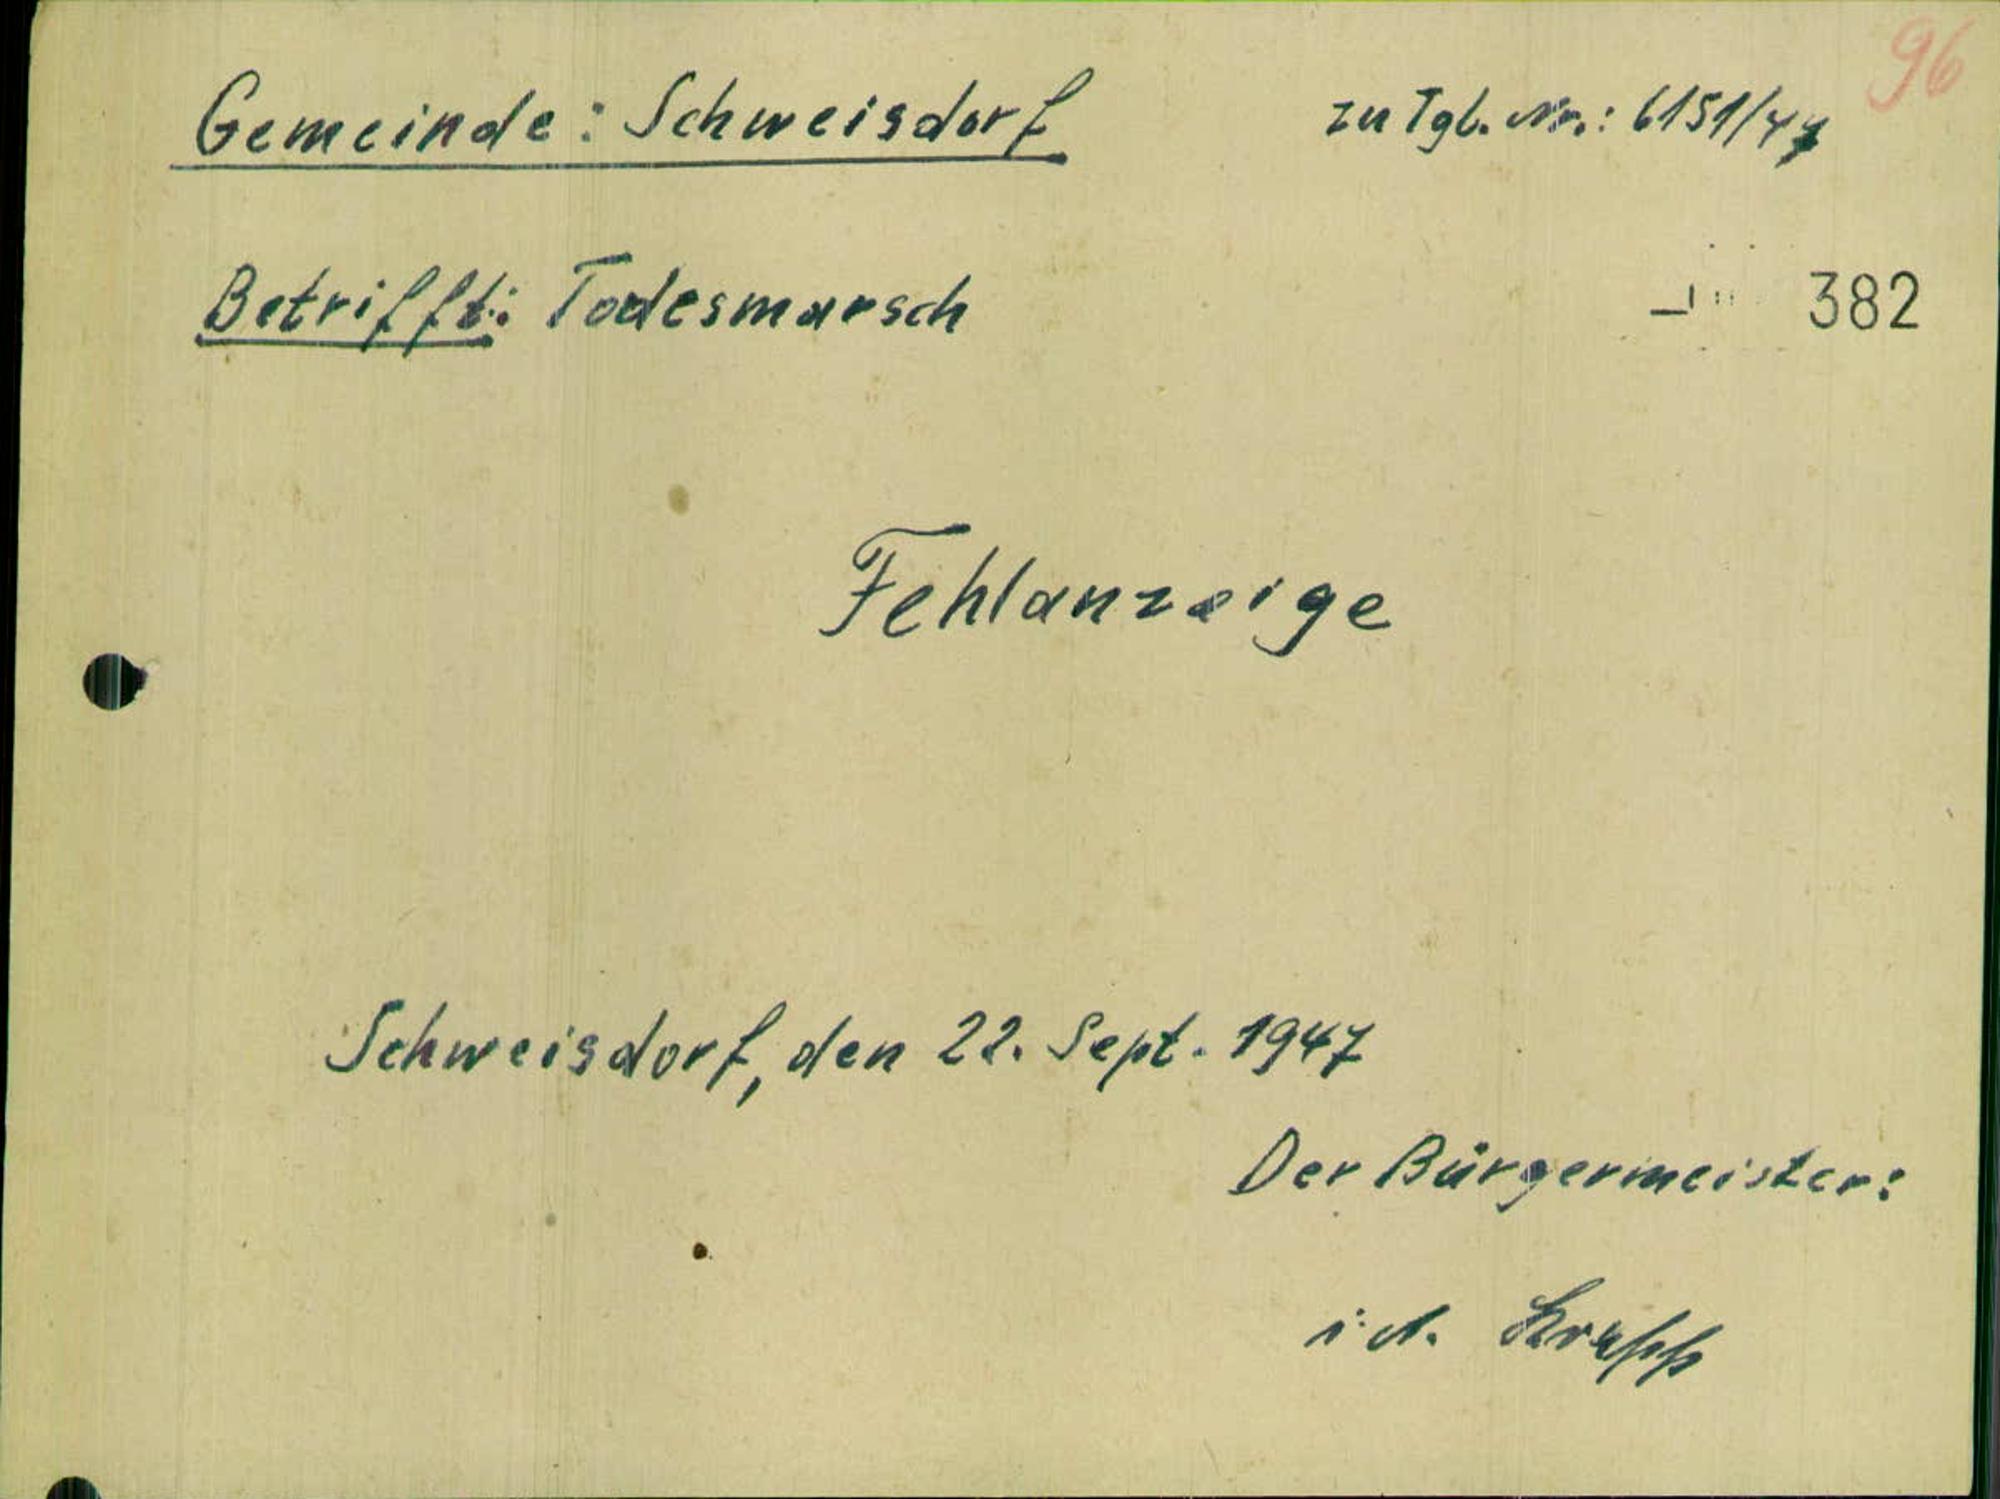 96
Gemeinde: Schweisdorf
zu Tgb. Nr.: 6151/47
Betrifft: Todesmarsch
382
Fehlanzeige
Schweisdorf, den 22. Sept. 1947
Der Bürgermeister:
i. A.